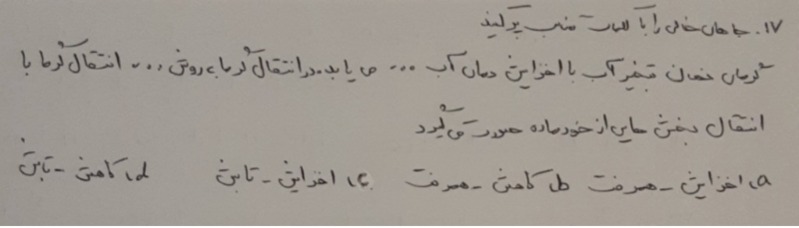 ۱۷. جاهای خالی را با کلمات مناسب پر کنید
گرمای نهان تبخیر آب با افزایش دمای آب ... می یابد. در انتقال گرما به روش ... انتقال گرما با
انتقال بخش هایی از خود ماده صورت می گیرد
a) افزایش - همرفت b) کاهش - همرفت c) افزایش - تابش d) کاهش - تابش